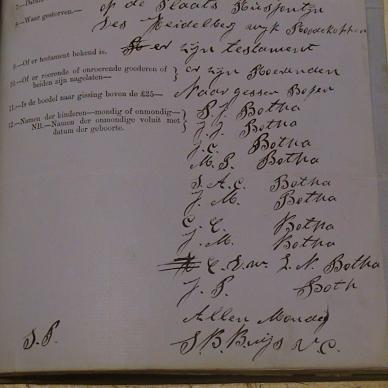 op de Plaats
8.—Waar gestorven.— Des Heidelberg wijk
9.—Of er testament bekend is. er zijn testament
10.—Of er roerende of onroerende goederen of beiden zijn nagelaten— er zijn
11.—Is de boedel naar gissing boven de £25— Naar gessen Bofen
12.—Namen der kinderen—mondig of onmondig—
NB.—Namen der onmondige voluit met datum der geboorte.
Botha
J. J. Botha
J. C. Botha
M. S. Botha
S. A. C. Botha
J. M. Botha
C. C. Botha
J. M. Botha
Botha
J. P. Both
Allen Mondig
S. B. Buijs V. C.
S. P.